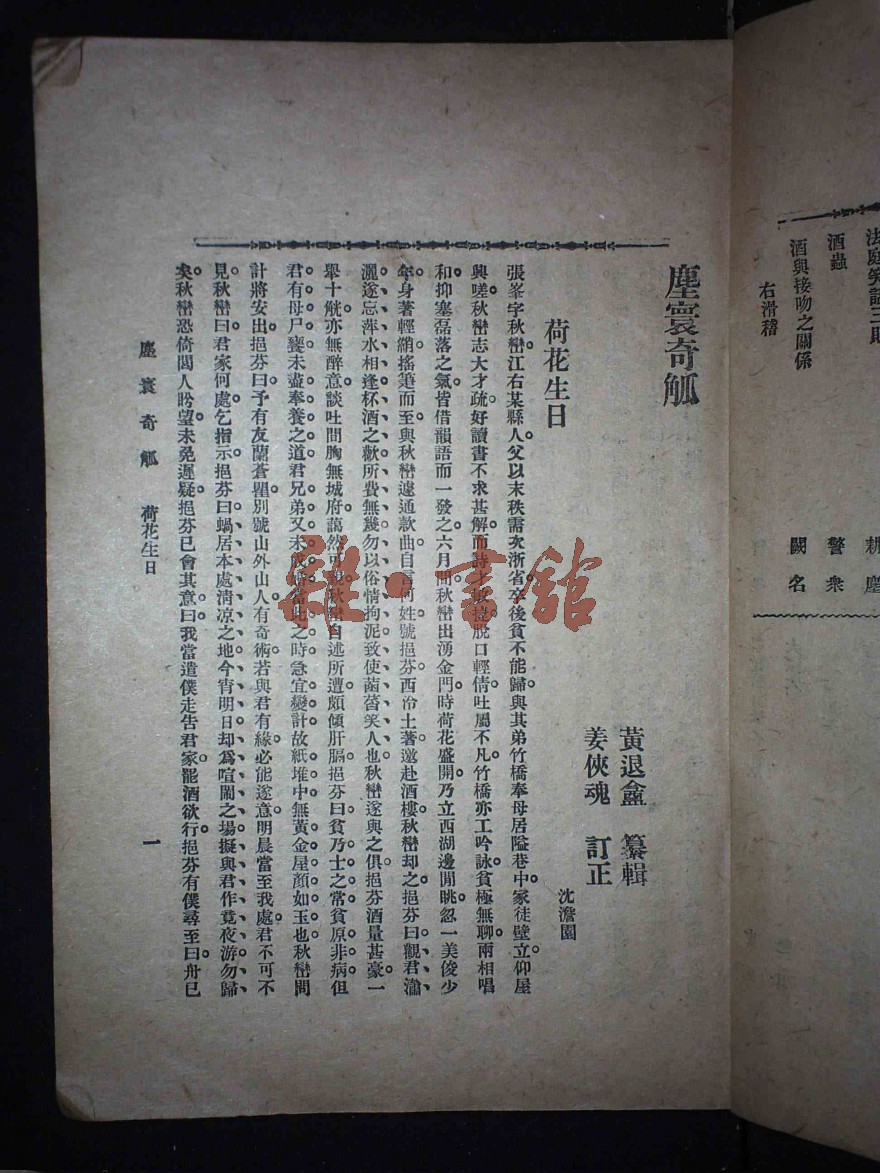 法庭笑話三則
酒蟲
酒與接吻之關係
右滑稽
耕塵
警衆
闕名
塵寰奇觚
黃退盦 纂輯
姜俠魂 訂正
荷花生日
沈澹園
張峯字秋巒江右某縣人。父以末秩需次浙省。卒後貧不能歸。與其弟竹橋奉母居隘巷中。家徒壁立。仰屋
興嗟。秋巒志大才疏。好讀書不求甚解。而詩才敏捷。脫口輕倩。吐屬不凡。竹橋亦工吟詠。貧極無聊。兩相唱
和。抑塞磊落之氣。皆借韻語而一發之。六月間秋巒出湧金門。時荷花盛開。乃立西湖邊閒眺。忽一美俊少
年。身著輕綃搖箑而至。與秋巒遽通款曲。自言何姓號挹芬。西冷土著。邀赴酒樓。秋巒却之。挹芬曰。觀君瀟
灑。遂忘萍水相逢。杯酒之歡。所費無幾。勿以俗情拘泥。致使菡萏笑人也。秋巒遂與之俱。挹芬酒量甚豪。一
舉十觥。亦無醉意。談吐間胸無城府。藹然可親。秋巒自述所遭。頗傾肝膈。挹芬曰。貧乃士之常。貧原非病。但
君有母尸饔。未盡奉養之道。君兄弟又未	婚。當此之時。急宜變計。故紙堆中。無黃金屋顏如玉也。秋巒問
計將安出。挹芬曰。予有友蘭蒼瞿。別號山外山人。有奇術。若與君有緣。必能遂意。明晨當至我處。君不可不
見。秋巒曰。君家何處。乞指示。挹芬曰。蝸居本處清凉之地。今宵明日。却爲喧鬧之場。擬與君作竟夜游。勿歸
矣。秋巒恐倚閭人盻望。未免遲疑。挹芬已會其意。曰。我當遣僕走告君家。罷酒欲行。挹芬有僕尋至。曰。舟已
塵寰奇觚 荷花生日 一
雜·書館